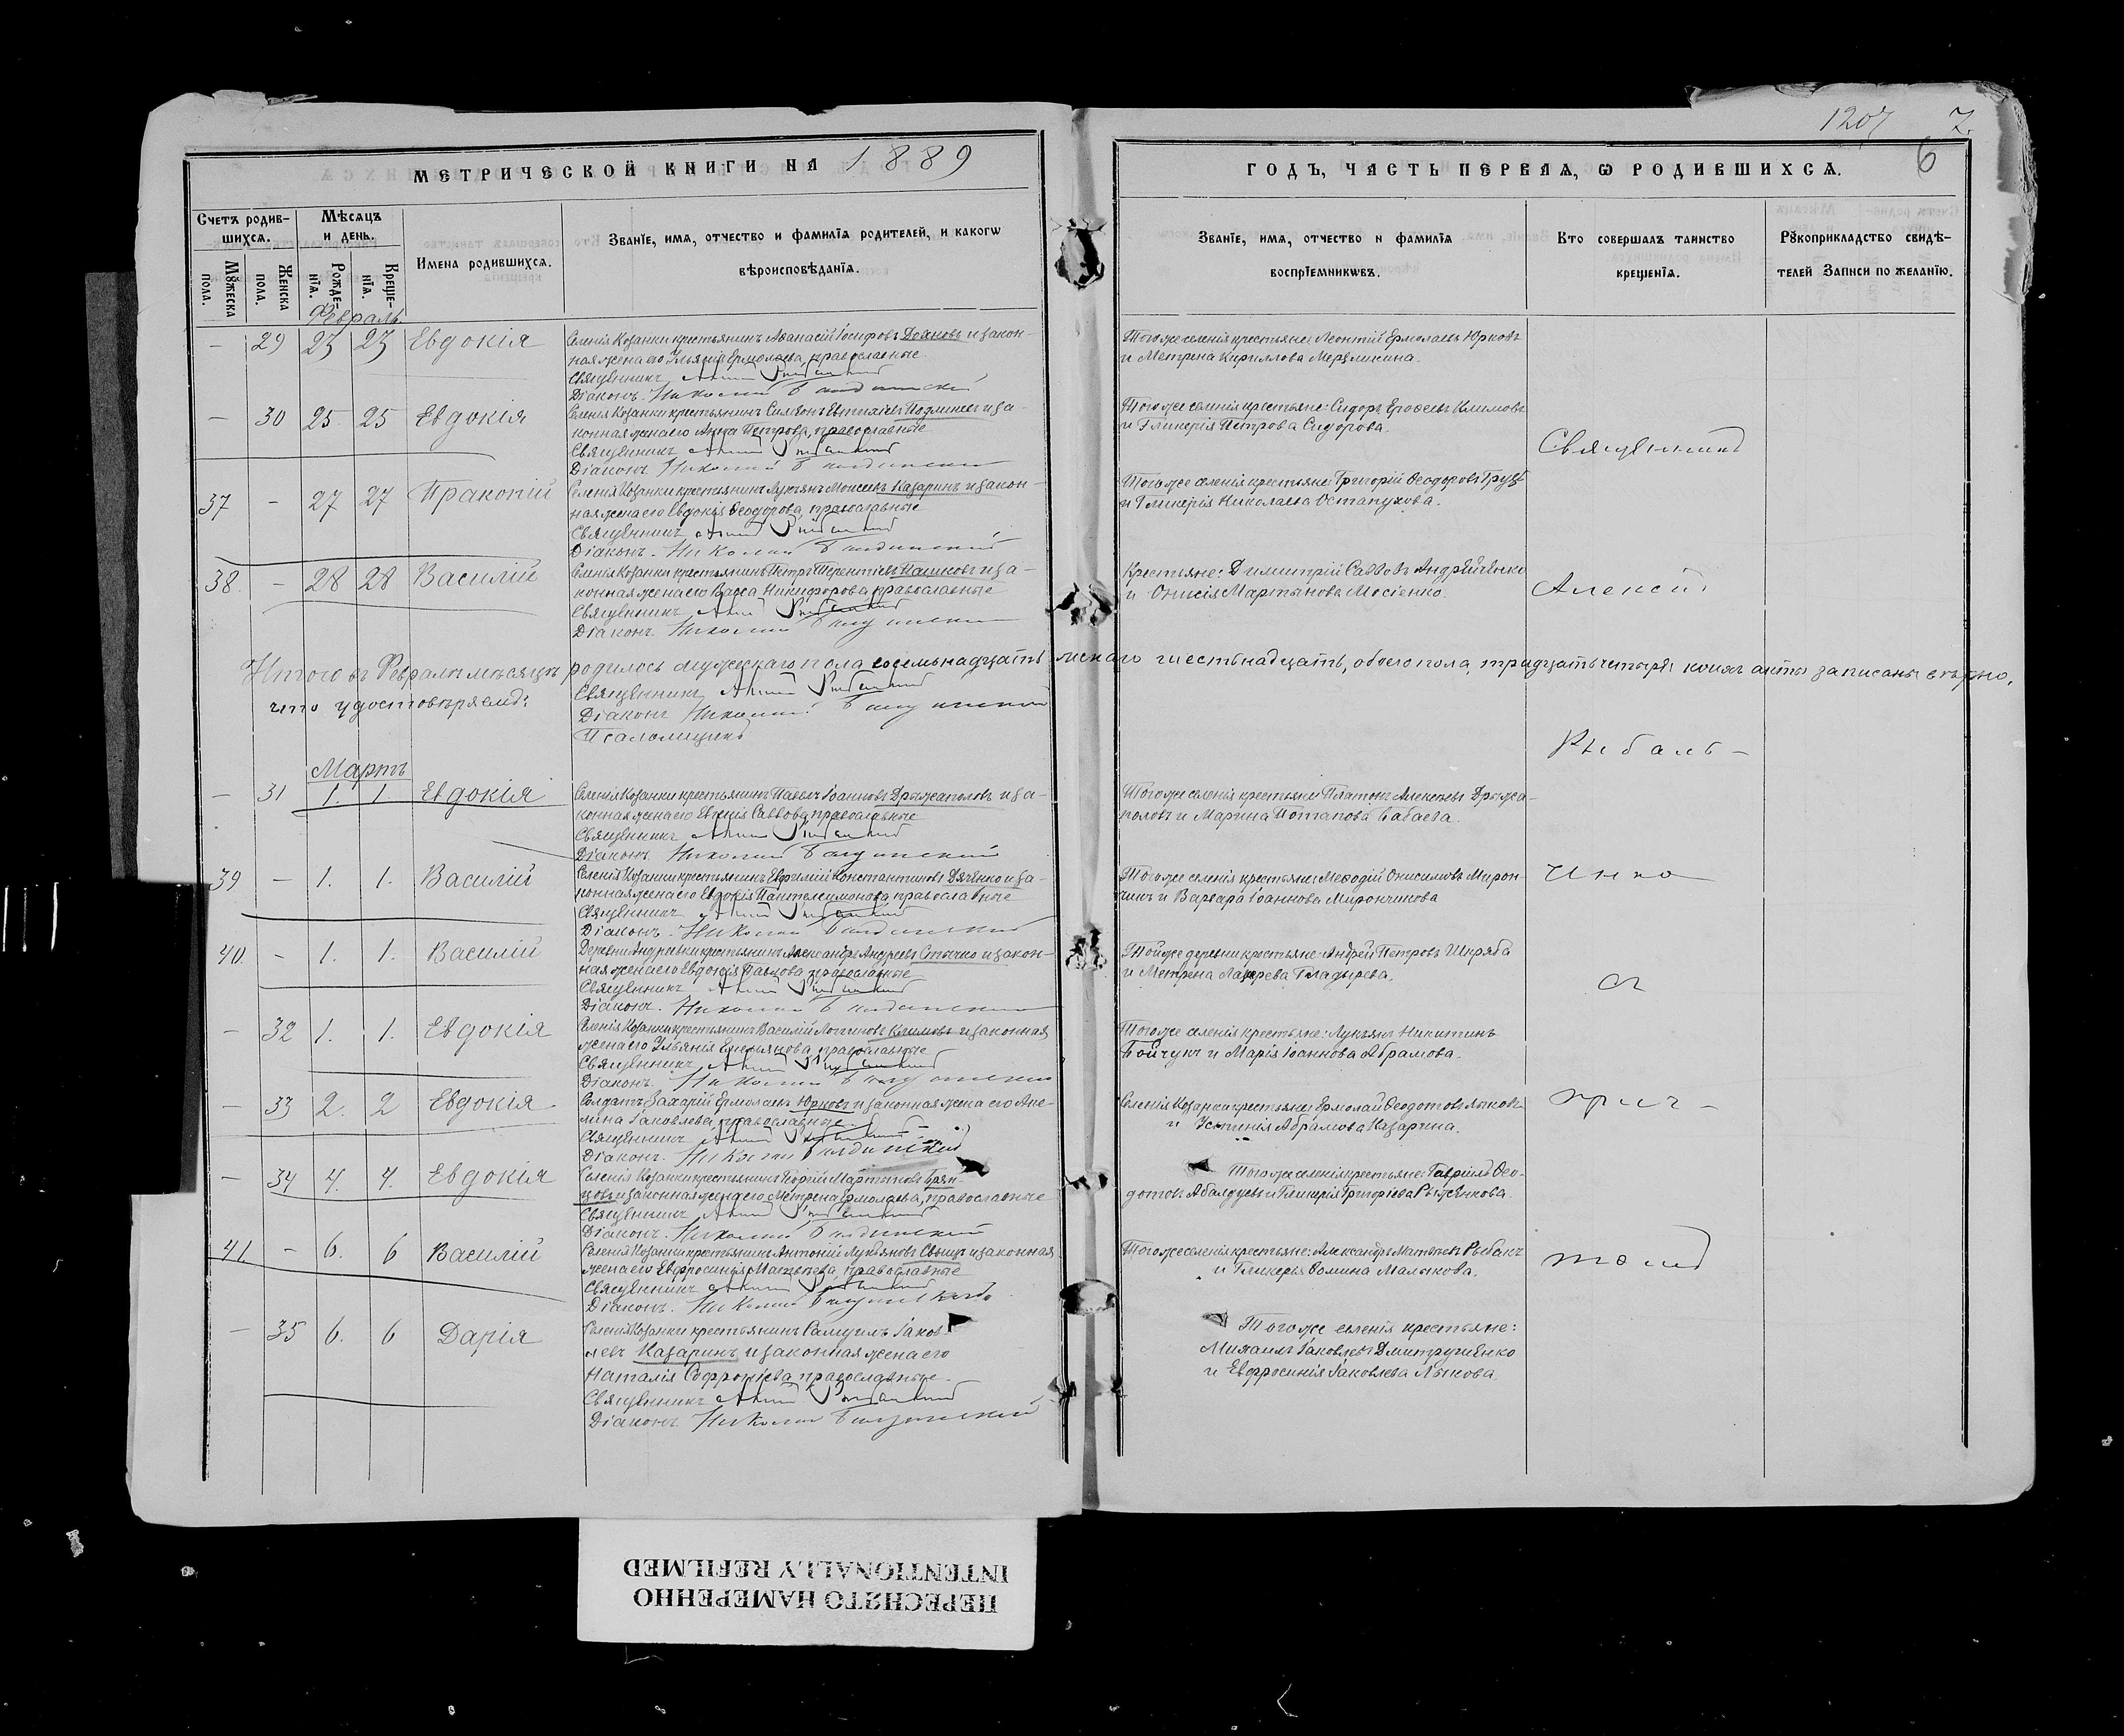 1207 7.
6
МЕТРИЧЕСКОЙ КНИГИ НА 1889
ГОДЪ, ЧАСТЬ ПЕРВАЯ, Ѡ РОДИВШИХСѦ.
Счетъ родив-
шихсѧ.
Мѣсѧцъ
и день.
Мꙋжеска
пола.
Женска
пола.
Рожде-
нїѧ.
Креще-
нїѧ.
Имена родившихсѧ.
Званїе, имѧ, отчество и фамилїѧ родителей, и какогѡ
вѣроисповѣданїѧ.
Званїе, имѧ, отчество и фамилїѧ
воспрїемникѡвъ.
Кто совершалъ таинство
крещенїѧ.
Рꙋкоприкладство свидѣ-
телей записи по желанїю.
Февраль
– 29 23 23 Евдокія
Селенія Козанки крестьянинъ Аѳанасій Іосифовъ Дояновъ и закон-
ная жена его Ульянія Ермолаева, православные
Священникъ
Діаконъ. Николай
Того же селенія крестьяне: Леонтій Ермолаевъ Юрковъ
и Метрена Кириллова
– 30 25. 25 Евдокія
Селенія Козанки крестьянинъ Симеонъ Евтихіевъ и за-
конная жена его Анна Петрова, православные
Священникъ
Діаконъ. Николай
Того же селенія крестьяне: Сидоръ Ероѳеевъ Климовъ
и Гликерія Петрова Сидорова.
Священникъ
37 – 27 27 Пракопій
Селенія Козанки крестьянинъ Лукьянъ Моисеевъ Казаринъ и закон-
ная жена его Евдокія Ѳеодорова, православные
Священникъ
Діаконъ. Николай
Того же селенія крестьяне: Григорій Ѳеодоровъ
и Гликерія Николаева Остапукова.
38. – 28 28 Василій
Селенія Козанки крестьянинъ Петръ Терентіевъ Пашковъ и за-
конная жена его Васса Никифорова православные
Священникъ
Діаконъ. Николай
Крестьяне: Димитрій Саввовъ Андрейченко
и Онисія Мартынова Мосіенко.
Алексій
Итого въ Февралѣ мѣсяцѣ родилось мужескаго пола восемьнадцать женскаго шестьнадцать, обоего пола тридцать четыре, коихъ акты записаны вѣрно,
что удостовѣряемъ:
Священникъ
Діаконъ Николай
Псаломщикъ
Рыбаль-
Мартъ
– 31 1. 1. Евдокія
Селенія Козанки крестьянинъ Павелъ Іоанновъ Дрыжаполовъ и за-
конная жена его Евгенія Саввова православные
Священникъ
Діаконъ. Николай
Того же селенія крестьяне Платонъ Алексѣевъ Дрыжа-
половъ и Марина Потапова Бабаева.
39 – 1. 1. Василій
Селенія Козанки крестьянинъ Евфимій Константиновъ Дяченко и за-
конная жена его Евдокія Пантелеимонова православные
Священникъ
Діаконъ. Николай
Того же селенія крестьяне: Меѳодій Онисимовъ Мирон-
чикъ и Варвара Іоаннова Мирончикова
чнко
40. – 1. 1. Василій
Деревни Андреевки крестьянинъ Александръ Андреевъ Стычко и закон-
ная жена его Евдокія Павлова православные
Священникъ
Діаконъ. Николай
Той же деревни крестьяне: Андрей Петровъ Шкряба
и Метрена Лазарева Гладырева.
съ
– 32 1. 1. Евдокія
Селенія Козанки крестьянинъ Василій Логгиновъ Климовъ и законная
жена его Ульянія Емельянова, православные
Священникъ
Діаконъ. Николай
Того же селенія крестьяне: Лукьянъ Никитинъ
Бойчукъ и Марія Іоаннова Абрамова.
– 33 2. 2 Евдокія
Солдатъ Захарій Ермолаевъ Юрковъ и законная жена его Аке-
лина Іаковлева, православные
Священникъ
Діаконъ. Николай
Селенія Козанки крестьяне: Ермолай Ѳеодотовъ Лыковъ
и Устинія Абрамова Казарина.
прич-
– 34 4. 4. Евдокія
Селенія Козанки крестьянинъ Георгій Мартыновъ Брян-
цовъ и законная жена его Метрена Ермолаева, православные
Священникъ
Діаконъ. Николай
Того же селенія крестьяне: Гавріилъ Ѳео-
дотовъ Абалдуевъ и Гликерія Григоріева Рыженкова.
41. – 6. 6 Василій
Селенія Козанки крестьянинъ Антоній Лукьяновъ Свищъ и законная
жена его Евфросинія Матвѣева, православные
Священникъ
Діаконъ. Николай
Того же селенія крестьяне: Александръ Матвѣевъ Рыбакъ
и Гликерья Ѳомина Малыкова.
томъ
– 35 6. 6 Дарія
Селенія Козанки крестьянинъ Самуилъ Іаков-
левъ Казаринъ и законная жена его
Наталія Софроніева православные
Священникъ
Діаконъ. Николай
Того же селенія крестьяне:
Михаилъ Іаковлевъ Дмитрученко
и Евфросинія Іаковлева Лыкова.
ПЕРЕСНЯТО НАМЕРЕННО
INTENTIONALLY REFILMED